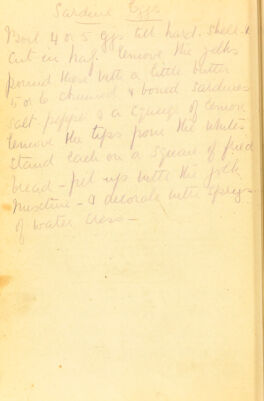 Sardine Eggs
Boil 4 or 5 eggs till hard. Shell &
cut in half. Remove the yolks
pound these with a little butter
5 or 6 skinned & boned sardines
salt pepper & a squeeze of lemon.
Remove the tips from the whites
stand each on a square of fried
bread - fill ups with the yolk
mixture - & decorate with sprays
of water cress -